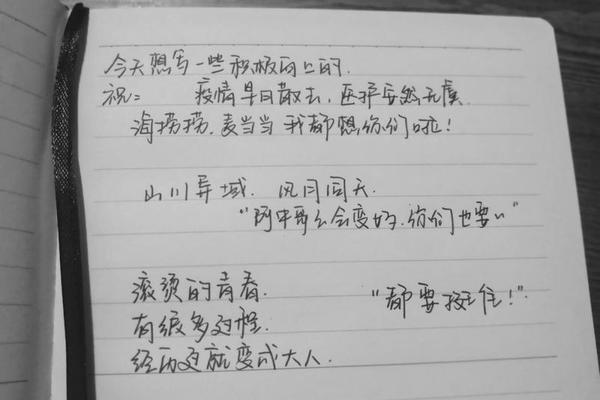 今天想写一些积极向上的.
祝: 疫情早日散去,医护安然无虞.
海捞捞,麦当当 我都想你们啦!
山川异域. 风月同天.
"阿中哥么会变好.你们也要~"
滚烫的青春.
"都要挺住!".
有很多过程.
经历过就变成大人.